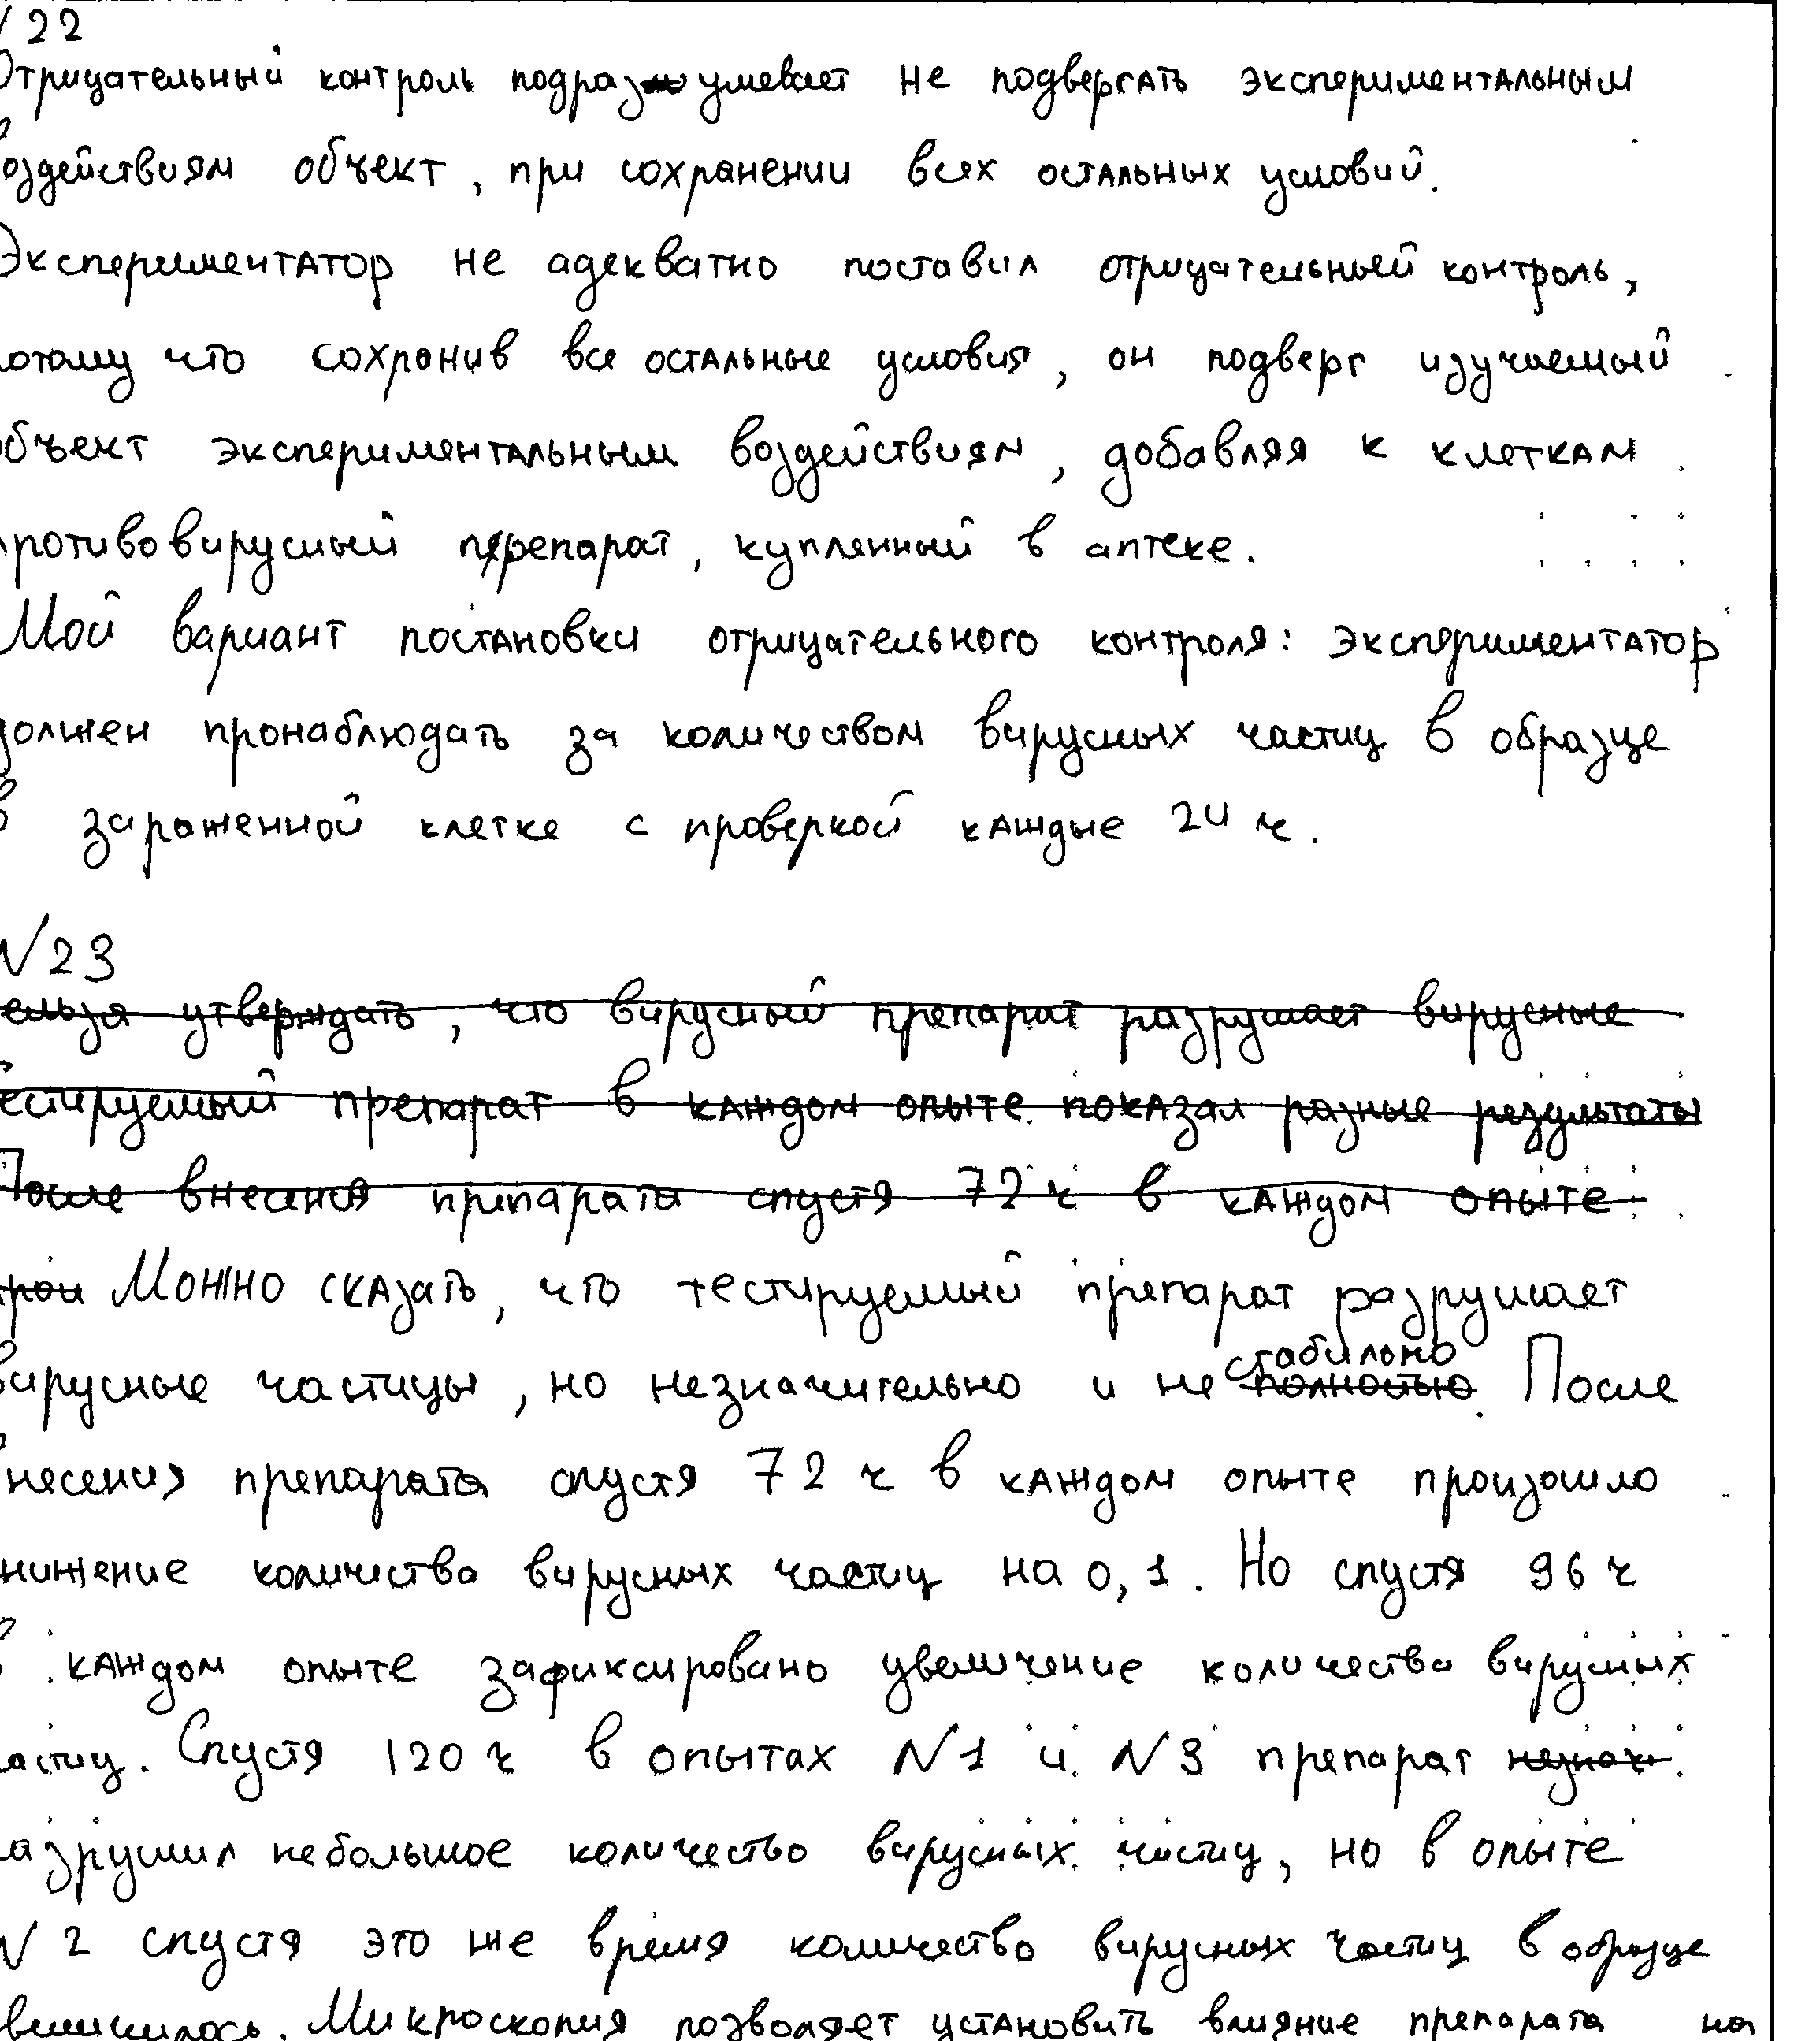 22
Отрицательный контроль подразумевает не подвергать экспериментальным
воздействиям объект, при сохранении всех остальных условий.
Экспериментатор не адекватно поставил отрицательный контроль,
потому что сохранив все остальные условия, он подверг изучаемый
объект экспериментальным воздействиям, добавляя к клеткам
противовирусный препарат, купленный в аптеке.
Мой вариант постановки отрицательного контроля: экспериментатор
должен пронаблюдать за количеством вирусных частиц в образце
в зараженной клетке с проверкой каждые 24 ч.
N23
ельзя утверждать, что вирусный препарат разрушает вирусные
тестируемый препарат в каждом опыте показал разные результаты
После внесения препарата спустя 72 ч в каждом опыте
прои Можно сказать, что тестируемый препарат разрушает
вирусные частицы, но незначительно и не полностью стабильно. После
внесения препарата спустя 72 ч в каждом опыте произошло
снижение количества вирусных частиц на 0,1. Но спустя 96 ч
в каждом опыте зафиксировано увеличение количества вирусных
частиц. Спустя 120 ч в опытах N1 и N3 препарат незнач
разрушил небольшое количество вирусных частиц, но в опыте
N2 спустя это же время количество вирусных частиц в образце
увеличилось. Микроскопия позволяет установить влияние препарата на